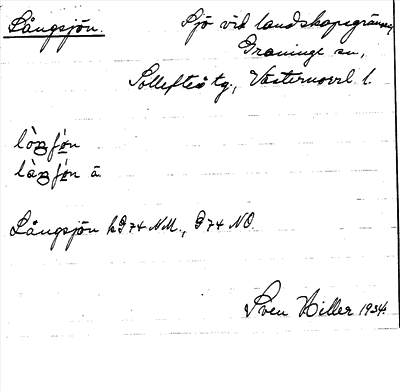 Långsjön.
Sjö vid landskapsgränsen,
Graninge sn,
Sollefteå tg., Västernorrl. l.
lòŋʃø̀n
làŋʃø̀n ä.
Långsjön k G 74 NM., G 74 NO.
Sven Hiller 1934.